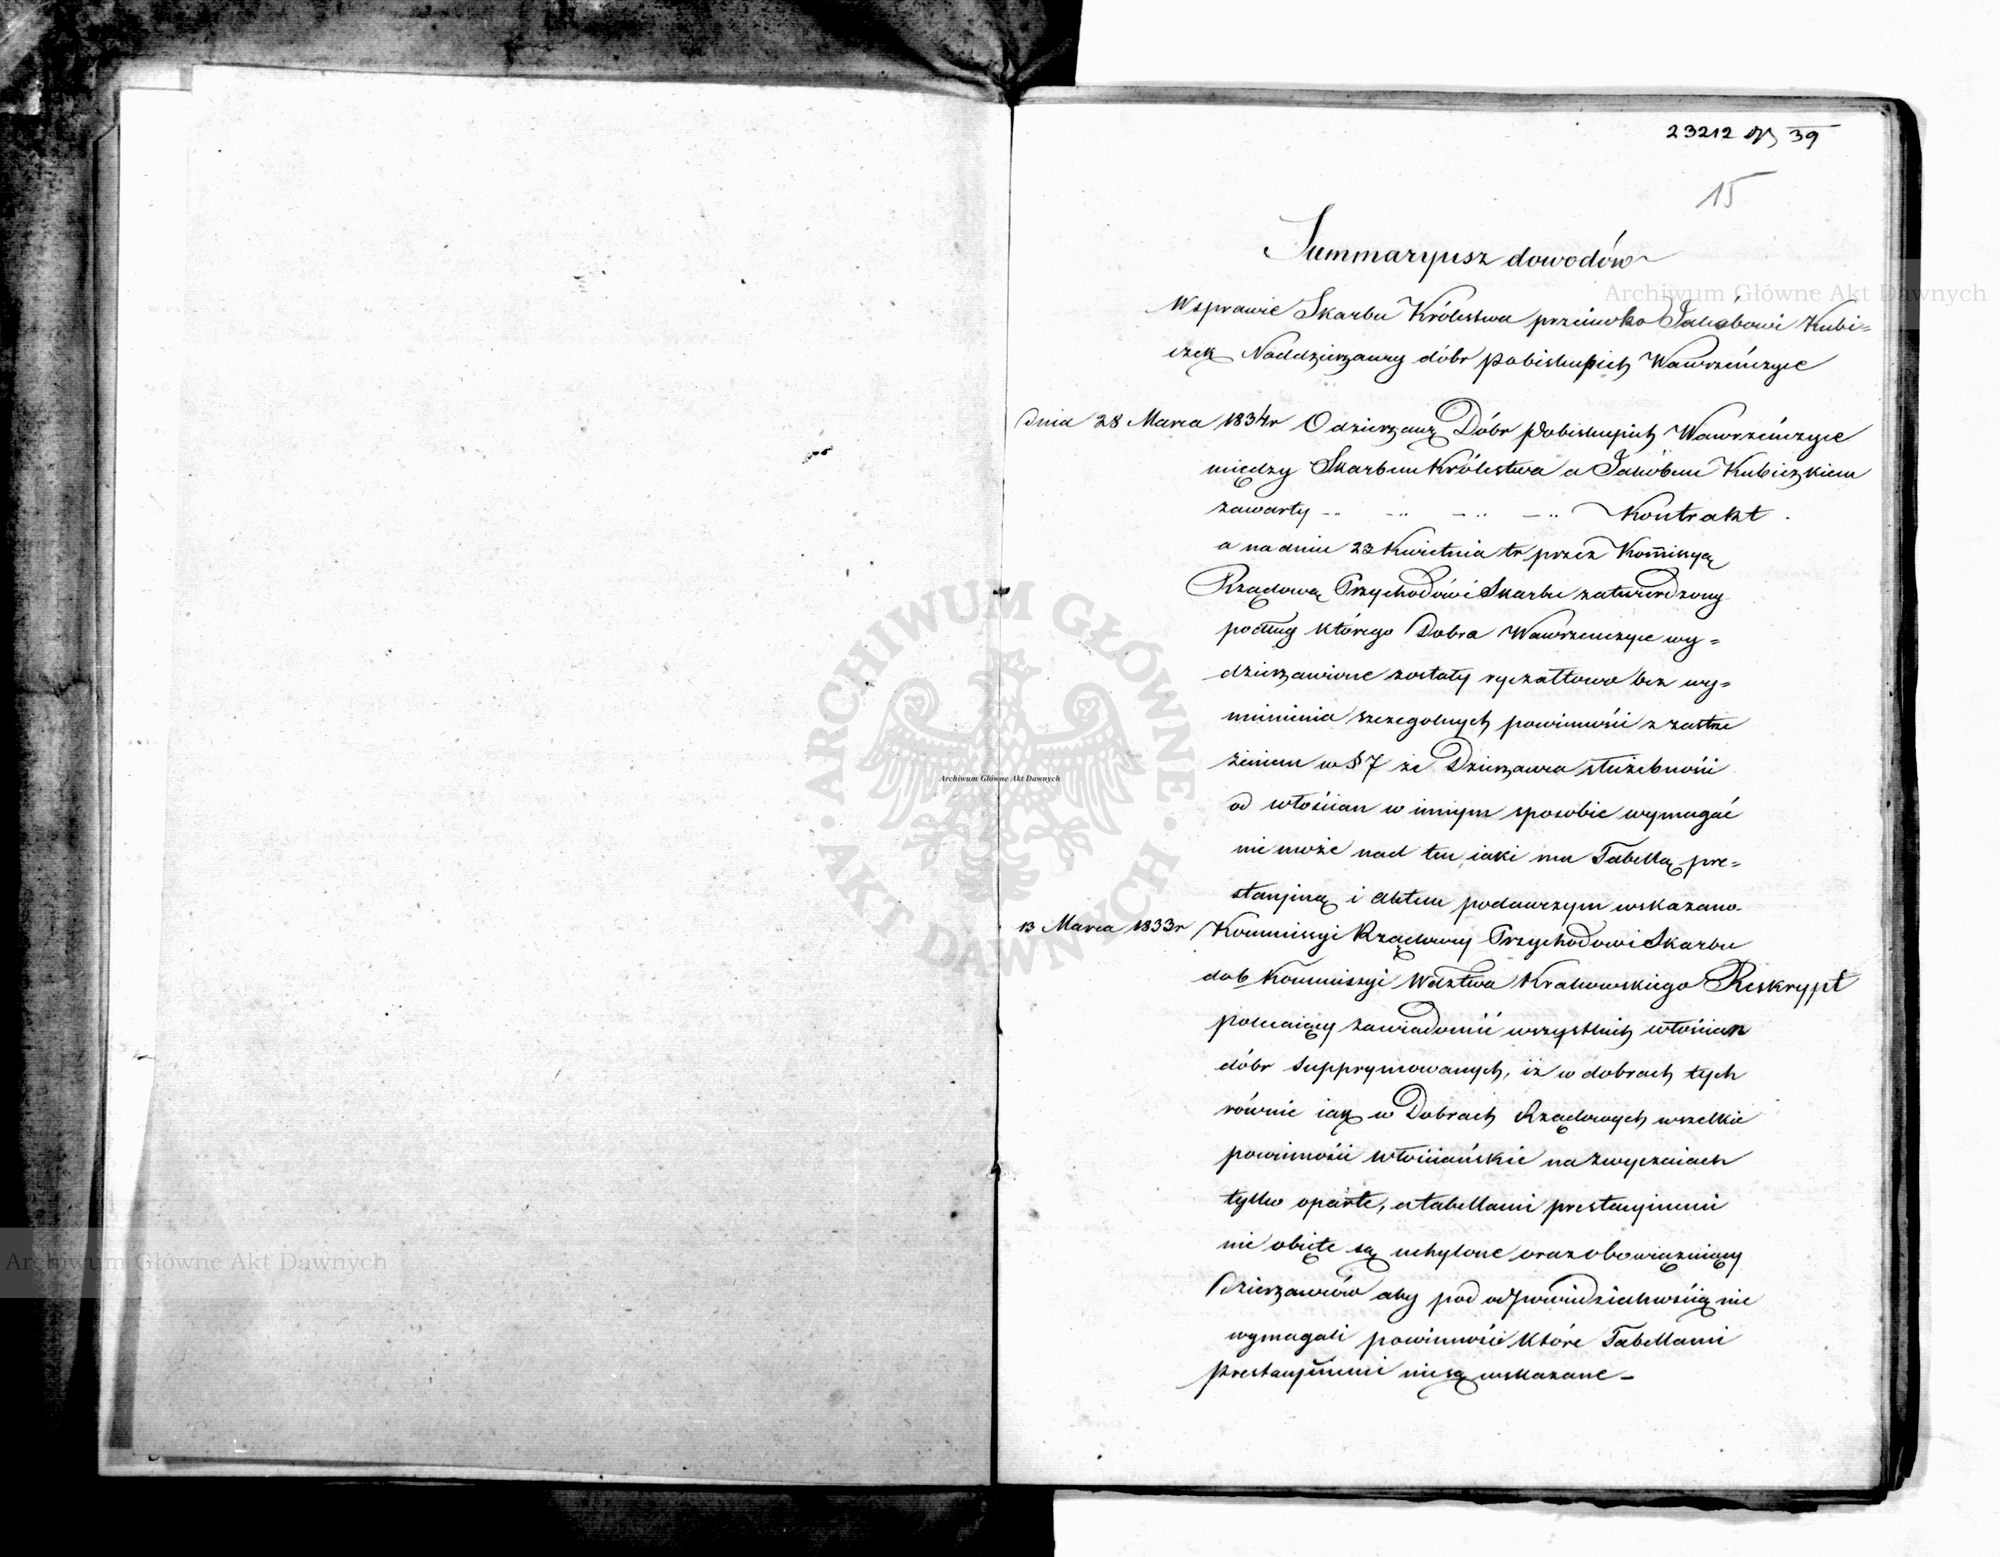 23212 39
15
Summaryusz dowodów
W sprawie Skarbu Królestwa przeciwko Jakóbowi Kubi=
czek Naddzierżawcy dóbr pobiskupich Wawrzeńczyce
Dnia 28 Marca 1834r O dzierżawę Dóbr Pobiskupich Wawrzeńczyce
między Skarbem Królestwa a Jakóbem Kubiczkiem
zawarty - .. - .. - .. - .. Kontrakt .
a na dniu 23 Kwietnia tr przez Kommissyą
Rządową Przychodów i Skarbu zatwierdzony
podług którego Dobra Wawrzenczyce wy=
dzierżawione zostały ryczałtowo bez wy=
mienienia szczegolnych powinności z zastrze
żeniem w § 7 że Dzierżawca służebności
od włościan w innym sposobie wymagać
nie może nad ten iaki ma Tabellą pre=
stacyiną i aktem podawczym wskazano
13 Marca 1833r Kommissyi Rządowey Przychodow i Skarbu
do b Kommissyi Wdztwa Krakowskiego Reskrypt
polecaiący zawiadomić wszystkich włościan
dóbr supprymowanych, iż w dobrach tych
równie iak w Dobrach Rządowych wszelkie
powinności włościańskie na zwyczaiach
tylko oparte, a tabellami prestacyinemi
nie obięte są uchylone oraz obowiązuiący
Dzierżawców aby pod odpowiedzialnością nie
wymagali powinności które Tabellami
prestacyinemi nie są wskazane -
Archiwum Główne Akt Dawnych
ARCHIWUM GŁÓWNE AKT DAWNYCH
Archiwum Główne Akt Dawnych
Archiwum Główne Akt Dawnych